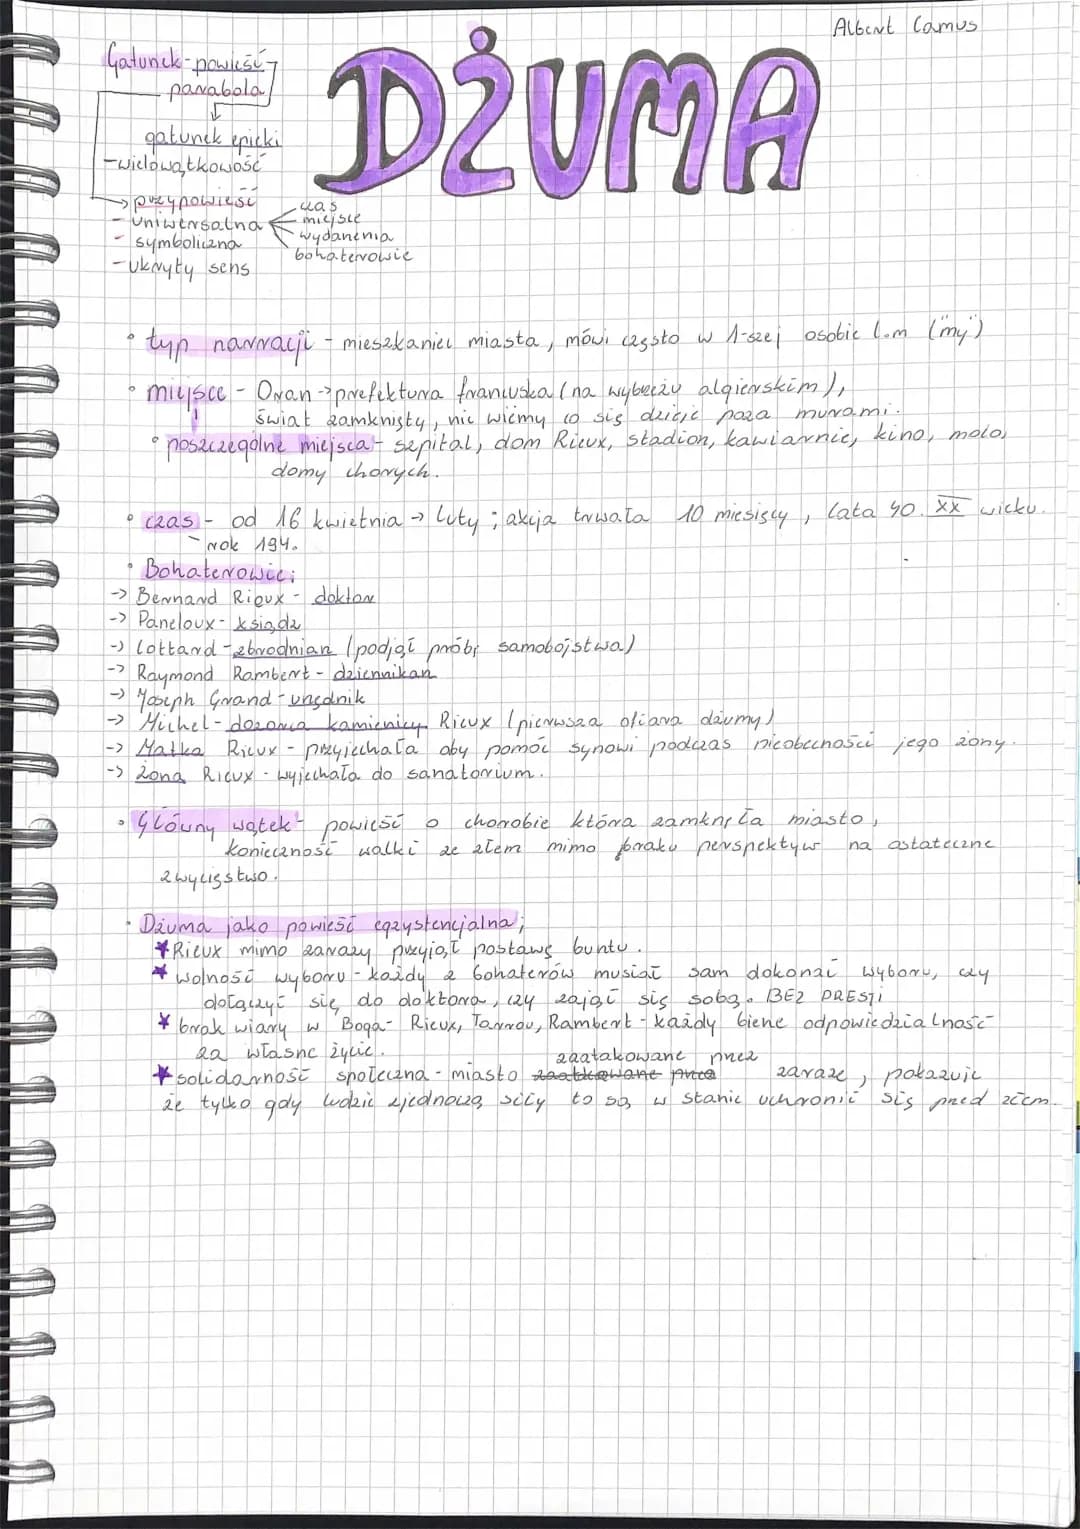 Albert Camus
DŻUMA
Gatunek - powieść
parabola
gatunek epicki
- wielowątkowość
przypowieść
- uniwersalna
- symboliczna
- ukryty sens
czas
miejsce
wydarzenia
bohaterowie
• typ narracji - mieszkaniec miasta, mówi często w 1-szej osobie l.m ("my")
• miejsce - Oran -> prefektura francuska (na wybrzeżu algierskim),
świat zamknięty, nic wiemy co się dzieje poza murami.
• poszczególne miejsca - szpital, dom Rieux, stadion, kawiarnie, kino, molo,
domy chorych.
• czas - od 16 kwietnia -> luty ; akcja trwała 10 miesięcy, lata 40. XX wieku.
- rok 194.
• Bohaterowie:
-> Bernard Rieux - doktor
-> Paneloux - ksiądz
-> Cottard - zbrodniarz (podjął próbę samobójstwa)
-> Raymond Rambert - dziennikarz
-> Joseph Grand - urzędnik
-> Michel - dozorca kamienicy Rieux (pierwsza ofiara dżumy)
-> Matka Rieux - przyjechała aby pomóc synowi podczas nieobecności jego żony.
-> Żona Rieux - wyjechała do sanatorium.
• Główny wątek - powieść o chorobie która zamknęła miasto,
konieczność walki ze złem mimo braku perspektyw na ostateczne
zwycięstwo.
• Dżuma jako powieść egzystencjalna;
* Rieux mimo zarazy przyjął postawę buntu.
* wolność wyboru - każdy z bohaterów musiał sam dokonać wyboru, czy
dołączyć się do doktora, czy zająć się sobą. BEZ PRESJI
* brak wiary w Boga - Rieux, Tarrou, Rambert - każdy bierze odpowiedzialność
za własne życie.
zaatakowane przez
* solidarność społeczna - miasto zaatkowane przez zarazę, pokazuje
że tylko gdy ludzie zjednoczą siły to są w stanie uchronić się przed złem.